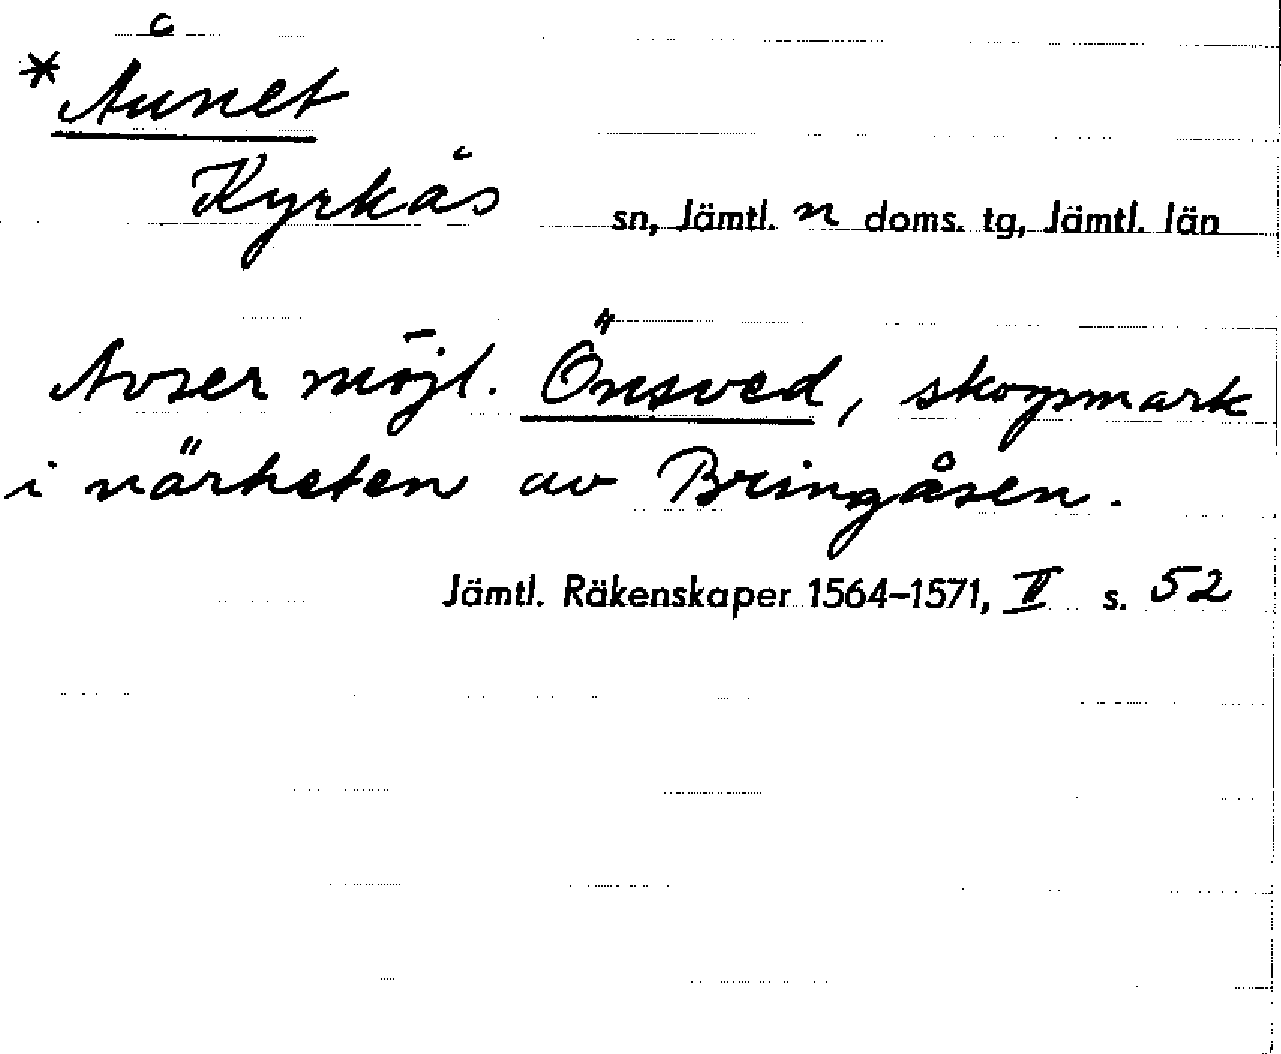 *Aunet
Kyrkås sn, Jämtl. n doms. tg, Jämtl. län
Avser möjl. Önsved, skogsmark
i närheten av Bringåsen.
Jämtl. Räkenskaper 1564–1571, II s. 52